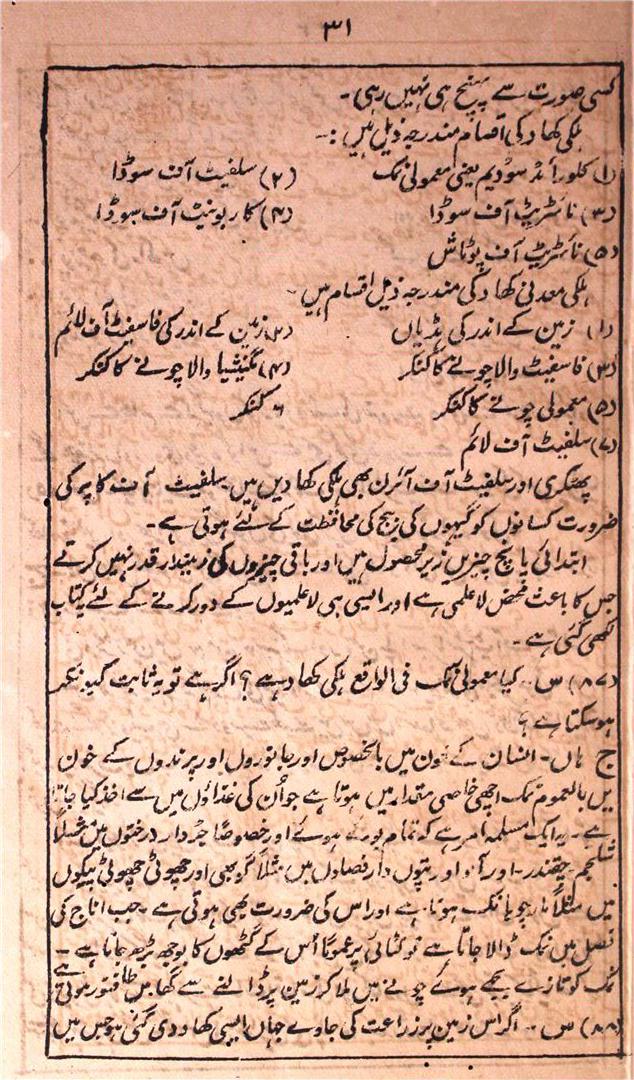 ۳۱
کسی صورت سے پہنچ ہی نہیں رہی۔
ہلکی کھاد کی اقسام مندرجہ ذیل ہیں :۔
(۱) کلورائڈ سوڈیم یعنی معمولی نمک (۲) سلفیٹ آف سوڈا
(۳) نائٹریٹ آف سوڈا (۴) کاربونیٹ آف سوڈا
(۵) نائٹریٹ آف پوٹاش
ہلکی معدنی کھاد کی مندرجہ ذیل اقسام ہیں۔
(۱) زمین کے اندر کی ہڈیاں (۲) زمین کے اندر کی فاسفیٹ آف لائم
(۳) فاسفیٹ والا چونے کا کنکر (۴) مگنیشیا والا چونے کا کنکر
(۵) معمولی چونے کا کنکر ۶ کنکر
(۷) سلفیٹ آف لائم
پھٹکری اور سلفیٹ آف آئرن بھی ہلکی کھادیں ہیں۔ سلفیٹ آف کاپر کی
ضرورت کسانوں کو گیہوں کی بیج کی محافظت کے لئے ہوتی ہے۔
ابتدائی پانچ چیزیں زیر محصول ہیں اور باقی چیزوں کی زمیندار قدر نہیں کرتے
جس کا باعث محض لاعلمی ہے اور ایسی ہی لاعلمیوں کے دور کرنے کے لئے یہ کتاب
لکھی گئی ہے۔
(۸۷) س۔۔ کیا معمولی نمک فی الواقع ہلکی کھاد ہے؟ اگر ہے تو یہ ثابت کیونکر
ہوسکتا ہے؟
ج ہاں۔ انسان کے خون میں بالخصوص اور جانوروں اور پرندوں کے خون
میں بالعموم نمک اچھی خاصی مقدار میں ہوتا ہے جو اُن کی غذاؤں میں سے اخذ کیا جاتا
ہے۔ یہ ایک مسلمہ امر ہے کہ تمام پودے ہوئے اور خصوصاً جڑدار درختوں میں مثلاً
شلجم۔ چقندر۔ اور آلو اور پتوں دار فصلوں میں مثلاً گوبھی اور چھوٹی چھوٹی
میں مثلاً نمک ہوتا ہے اور اس کی ضرورت بھی ہوتی ہے۔ جب اناج کی
فصل میں نمک ڈالا جاتا ہے تو کٹائی پر عموماً اُس کے گٹھوں کا بوجھ بڑھ جاتا ہے۔
نمک کو تازے بجھے ہوئے چونے میں ملا کر زمین پر ڈالنے سے گھاس طاقتور ہوتی ہے
(۸۸) س۔۔ اگر اس زمین پر زراعت کی جاوے جہاں ایسی کھاد دی گئی ہو جس میں